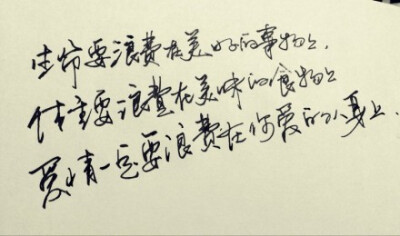 生命要浪费在美好的事物上,
体重要浪费在美味的食物上
爱情一定要浪费在你爱的人身上.